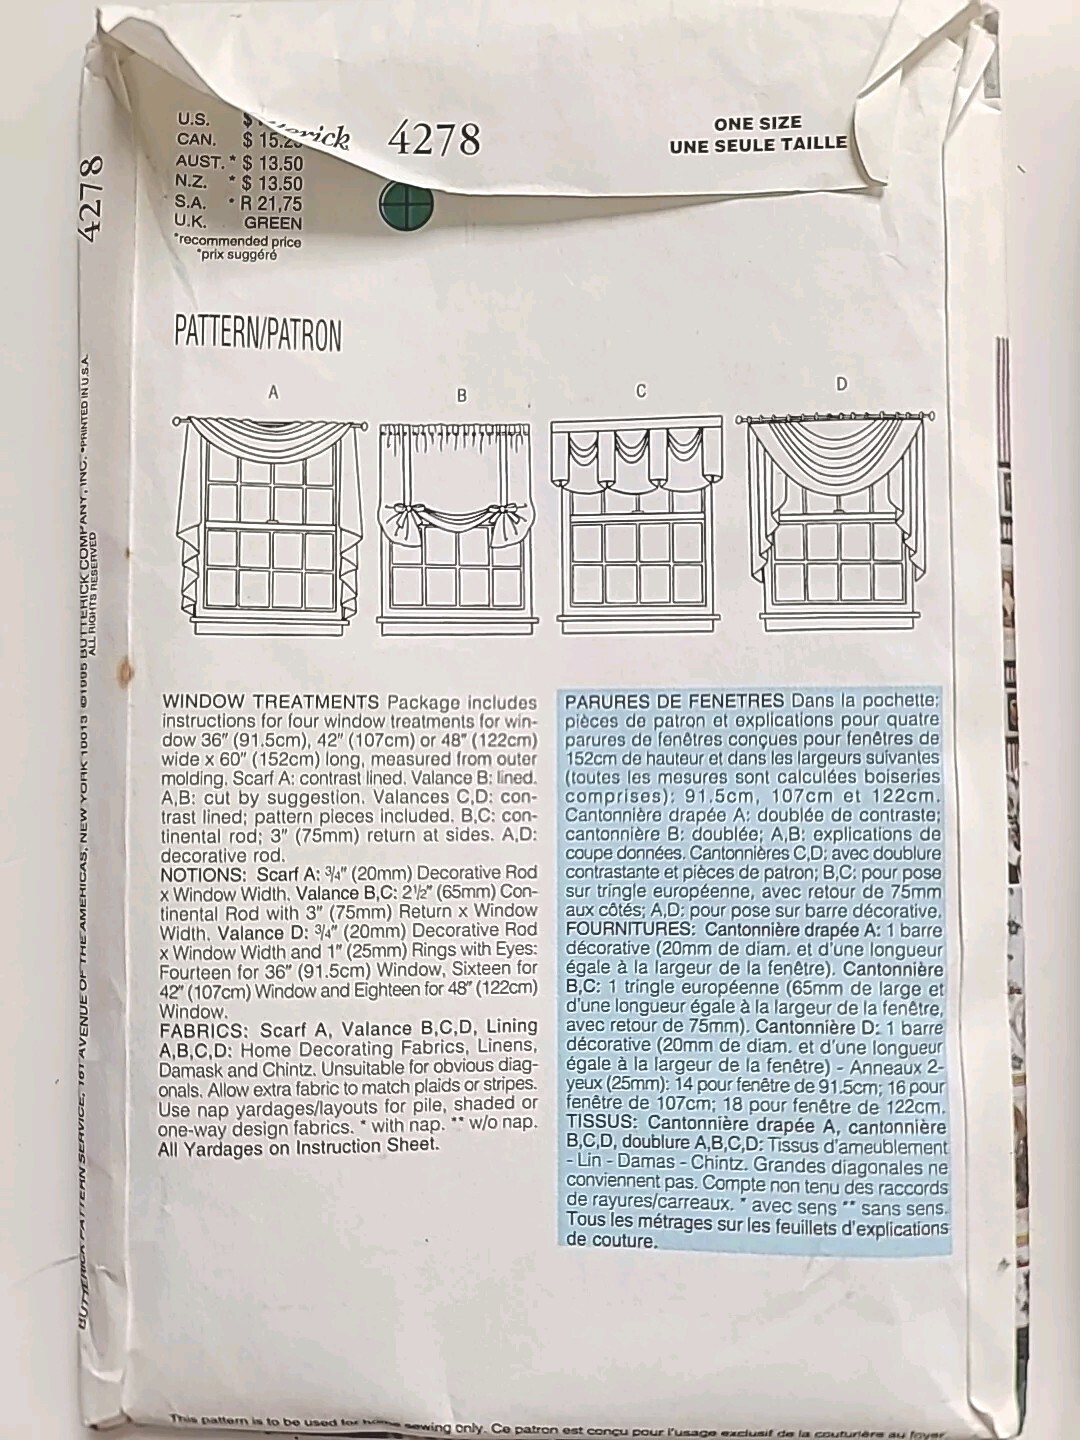 U.S. $
CAN. $ 15.25
AUST. * $ 13.50
N.Z. * $ 13.50
S.A. * R 21,75
U.K. GREEN
*recommended price
*prix suggéré
4278
ONE SIZE
UNE SEULE TAILLE
4278
PATTERN/PATRON
A
B
C
D
WINDOW TREATMENTS Package includes
instructions for four window treatments for win-
dow 36" (91.5cm), 42" (107cm) or 48" (122cm)
wide x 60" (152cm) long, measured from outer
molding. Scarf A: contrast lined. Valance B: lined.
A,B: cut by suggestion. Valances C,D: con-
trast lined; pattern pieces included. B,C: con-
tinental rod; 3" (75mm) return at sides. A,D:
decorative rod.
NOTIONS: Scarf A: 3/4" (20mm) Decorative Rod
x Window Width. Valance B,C: 2½" (65mm) Con-
tinental Rod with 3" (75mm) Return x Window
Width. Valance D: 3/4" (20mm) Decorative Rod
x Window Width and 1" (25mm) Rings with Eyes:
Fourteen for 36" (91.5cm) Window, Sixteen for
42" (107cm) Window and Eighteen for 48" (122cm)
Window.
FABRICS: Scarf A, Valance B,C,D, Lining
A,B,C,D: Home Decorating Fabrics, Linens,
Damask and Chintz. Unsuitable for obvious diag-
onals. Allow extra fabric to match plaids or stripes.
Use nap yardages/layouts for pile, shaded or
one-way design fabrics. * with nap. ** w/o nap.
All Yardages on Instruction Sheet.
PARURES DE FENETRES Dans la pochette:
pièces de patron et explications pour quatre
parures de fenêtres conçues pour fenêtres de
152cm de hauteur et dans les largeurs suivantes
(toutes les mesures sont calculées boiseries
comprises): 91.5cm, 107cm et 122cm.
Cantonnière drapée A: doublée de contraste;
cantonnière B: doublée; A,B: explications de
coupe données. Cantonnières C,D: avec doublure
contrastante et pièces de patron; B,C: pour pose
sur tringle européenne, avec retour de 75mm
aux côtés; A,D: pour pose sur barre décorative.
FOURNITURES: Cantonnière drapée A: 1 barre
décorative (20mm de diam. et d'une longueur
égale à la largeur de la fenêtre). Cantonnière
B,C: 1 tringle européenne (65mm de large et
d'une longueur égale à la largeur de la fenêtre,
avec retour de 75mm). Cantonnière D: 1 barre
décorative (20mm de diam. et d'une longueur
égale à la largeur de la fenêtre) - Anneaux 2-
yeux (25mm): 14 pour fenêtre de 91.5cm; 16 pour
fenêtre de 107cm; 18 pour fenêtre de 122cm.
TISSUS: Cantonnière drapée A, cantonnière
B,C,D, doublure A,B,C,D: Tissus d'ameublement
- Lin - Damas - Chintz. Grandes diagonales ne
conviennent pas. Compte non tenu des raccords
de rayures/carreaux. * avec sens ** sans sens.
Tous les métrages sur les feuillets d'explications
de couture.
BUTTERICK PATTERN SERVICE, 161 AVENUE OF THE AMERICAS, NEW YORK 10013 ©1995 BUTTERICK COMPANY, INC. •PRINTED IN U.S.A.
ALL RIGHTS RESERVED
This pattern is to be used for home sewing only. Ce patron est conçu pour l'usage exclusif de la couturière au foyer.